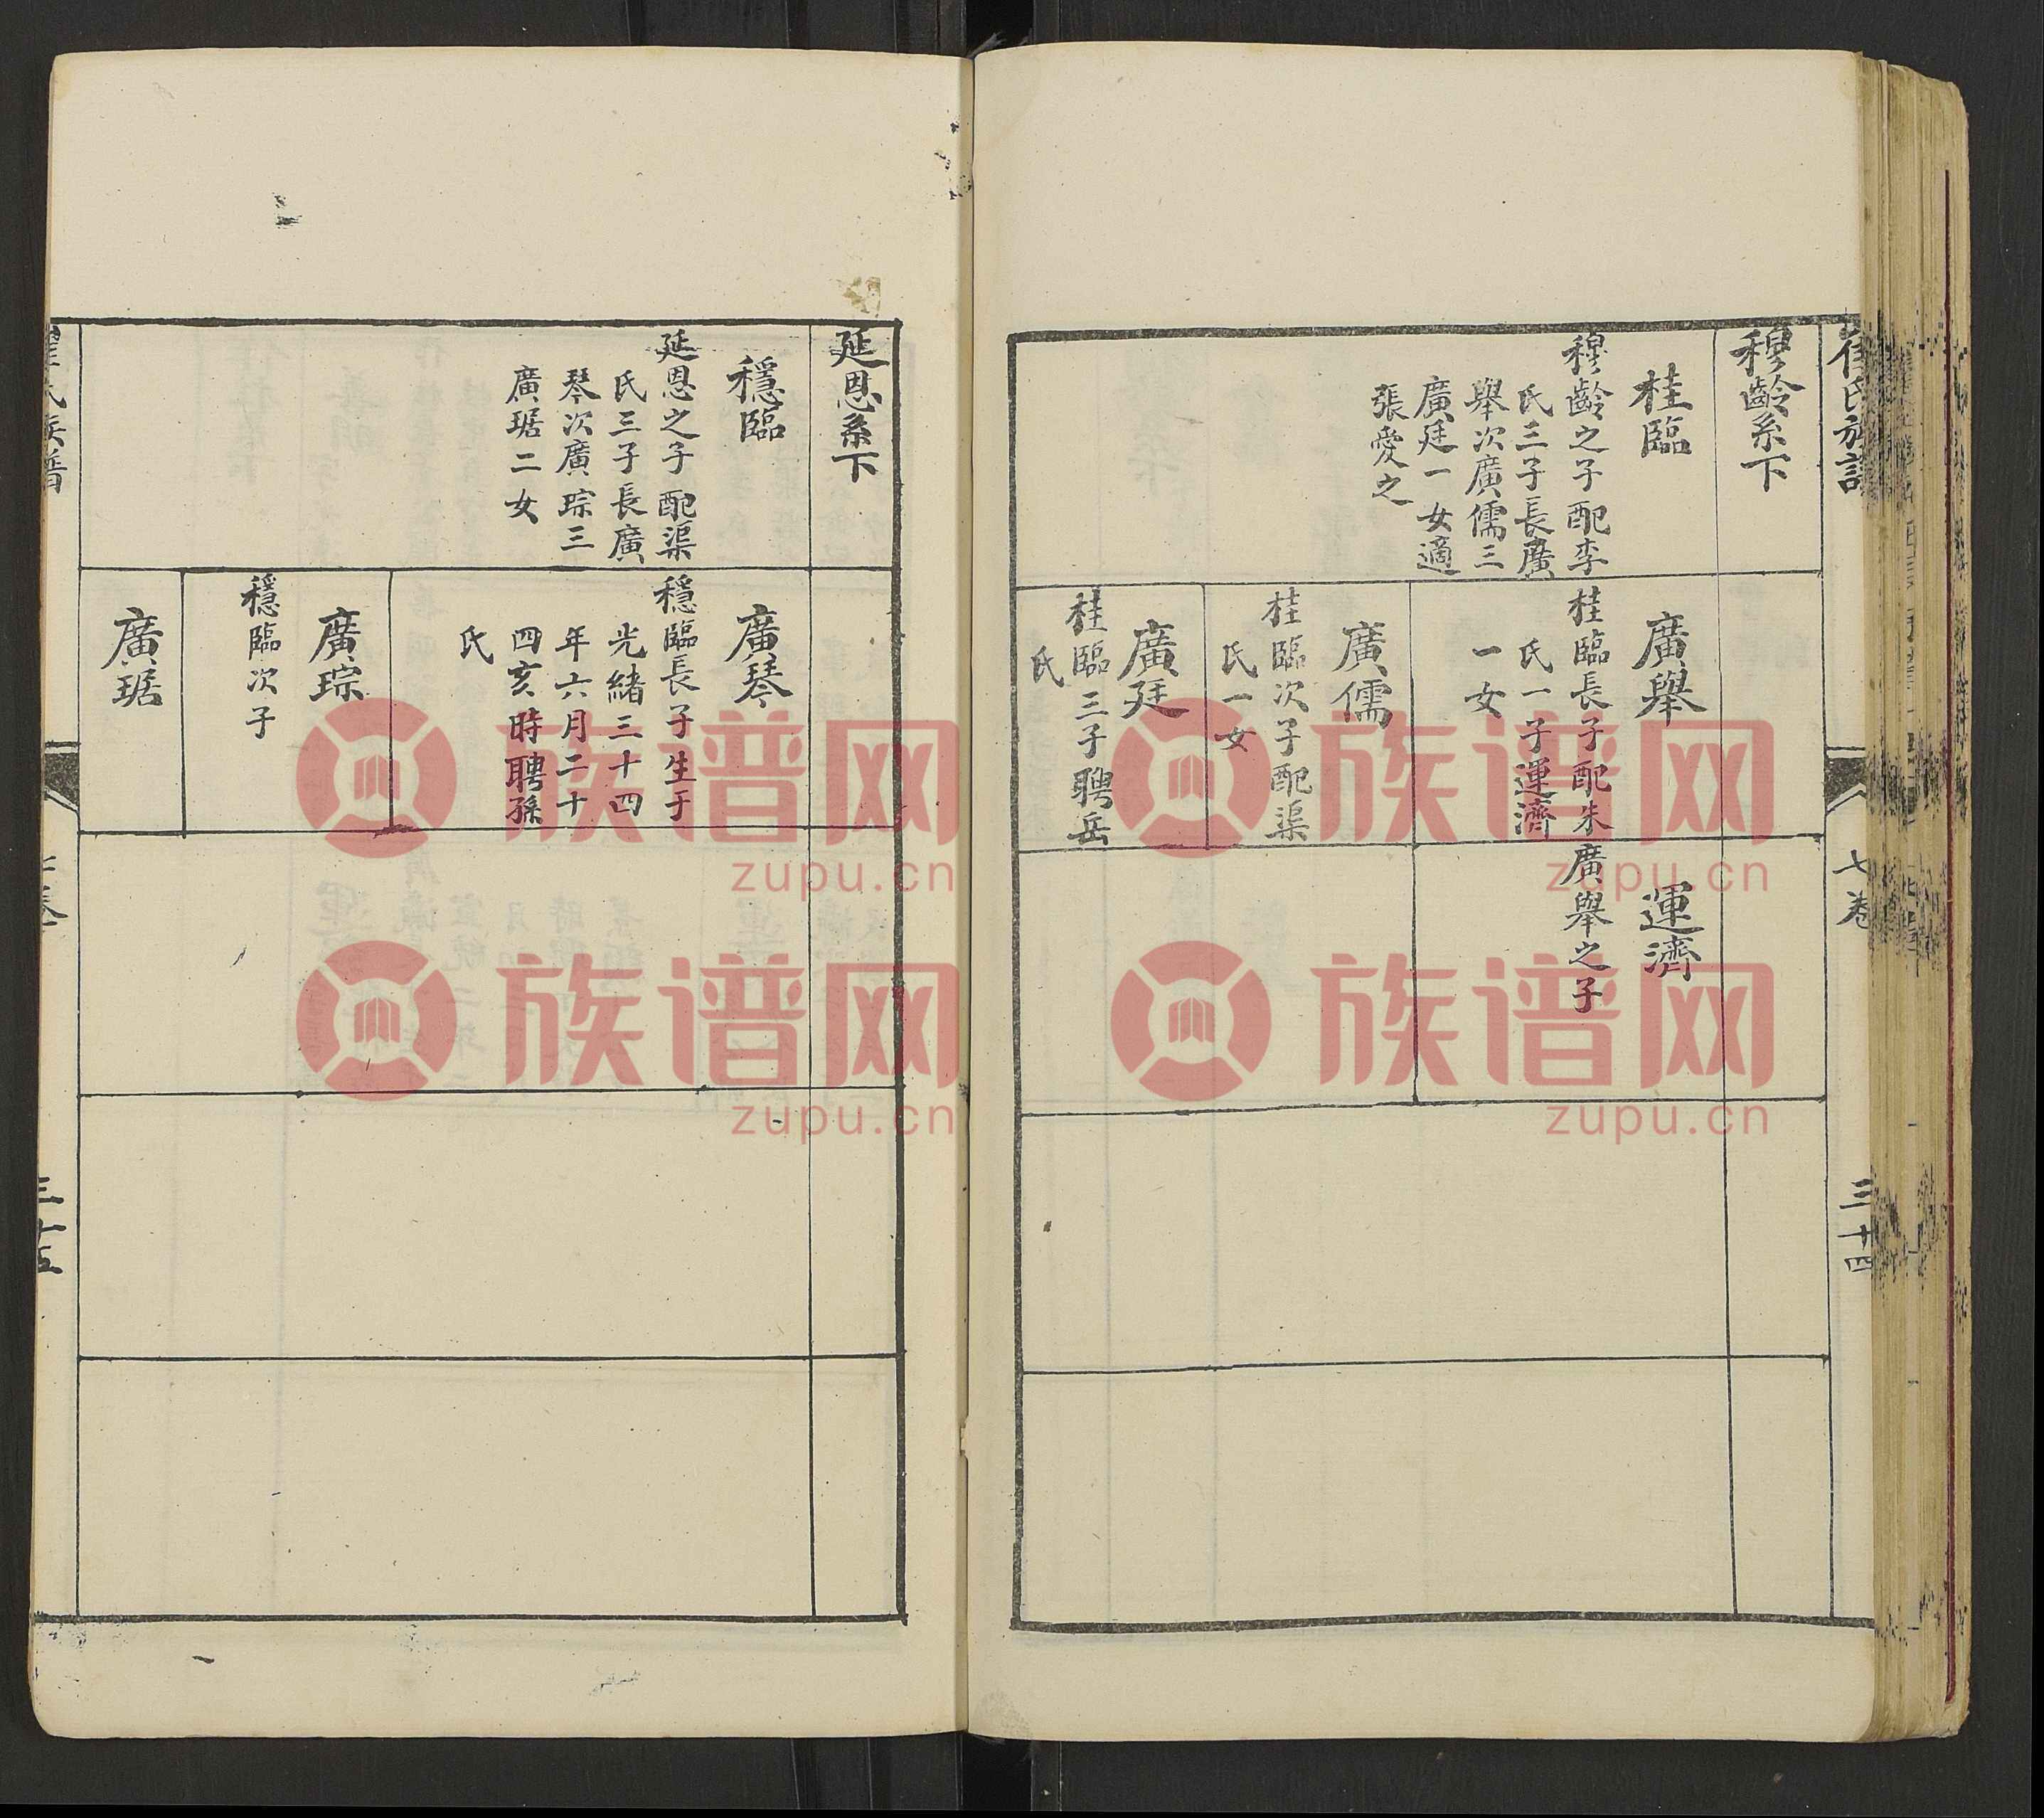 崔氏族譜
七卷
三十四
穆齡系下
桂臨
穆齡之子配李
氏三子長廣
舉次廣儒三
廣廷一女適
張愛之
廣舉
桂臨長子配朱
氏一子運濟
一女
廣儒
桂臨次子配渠
氏一女
廣廷
桂臨三子聘岳
氏
運濟
廣舉之子
延恩系下
穩臨
延恩之子配渠
氏三子長廣
琴次廣琮三
廣琚二女
廣琴
穩臨長子生于
光緒三十四
年六月二十
四亥時聘孫
氏
廣琮
穩臨次子
廣琚
三十五
族谱网
zupu.cn
族谱网
zupu.cn
族谱网
zupu.cn
族谱网
zupu.cn